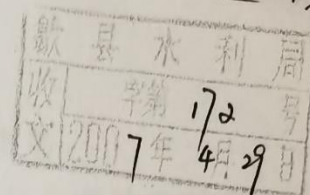 歙县水利局
收文 字第172号
2007年4月29日